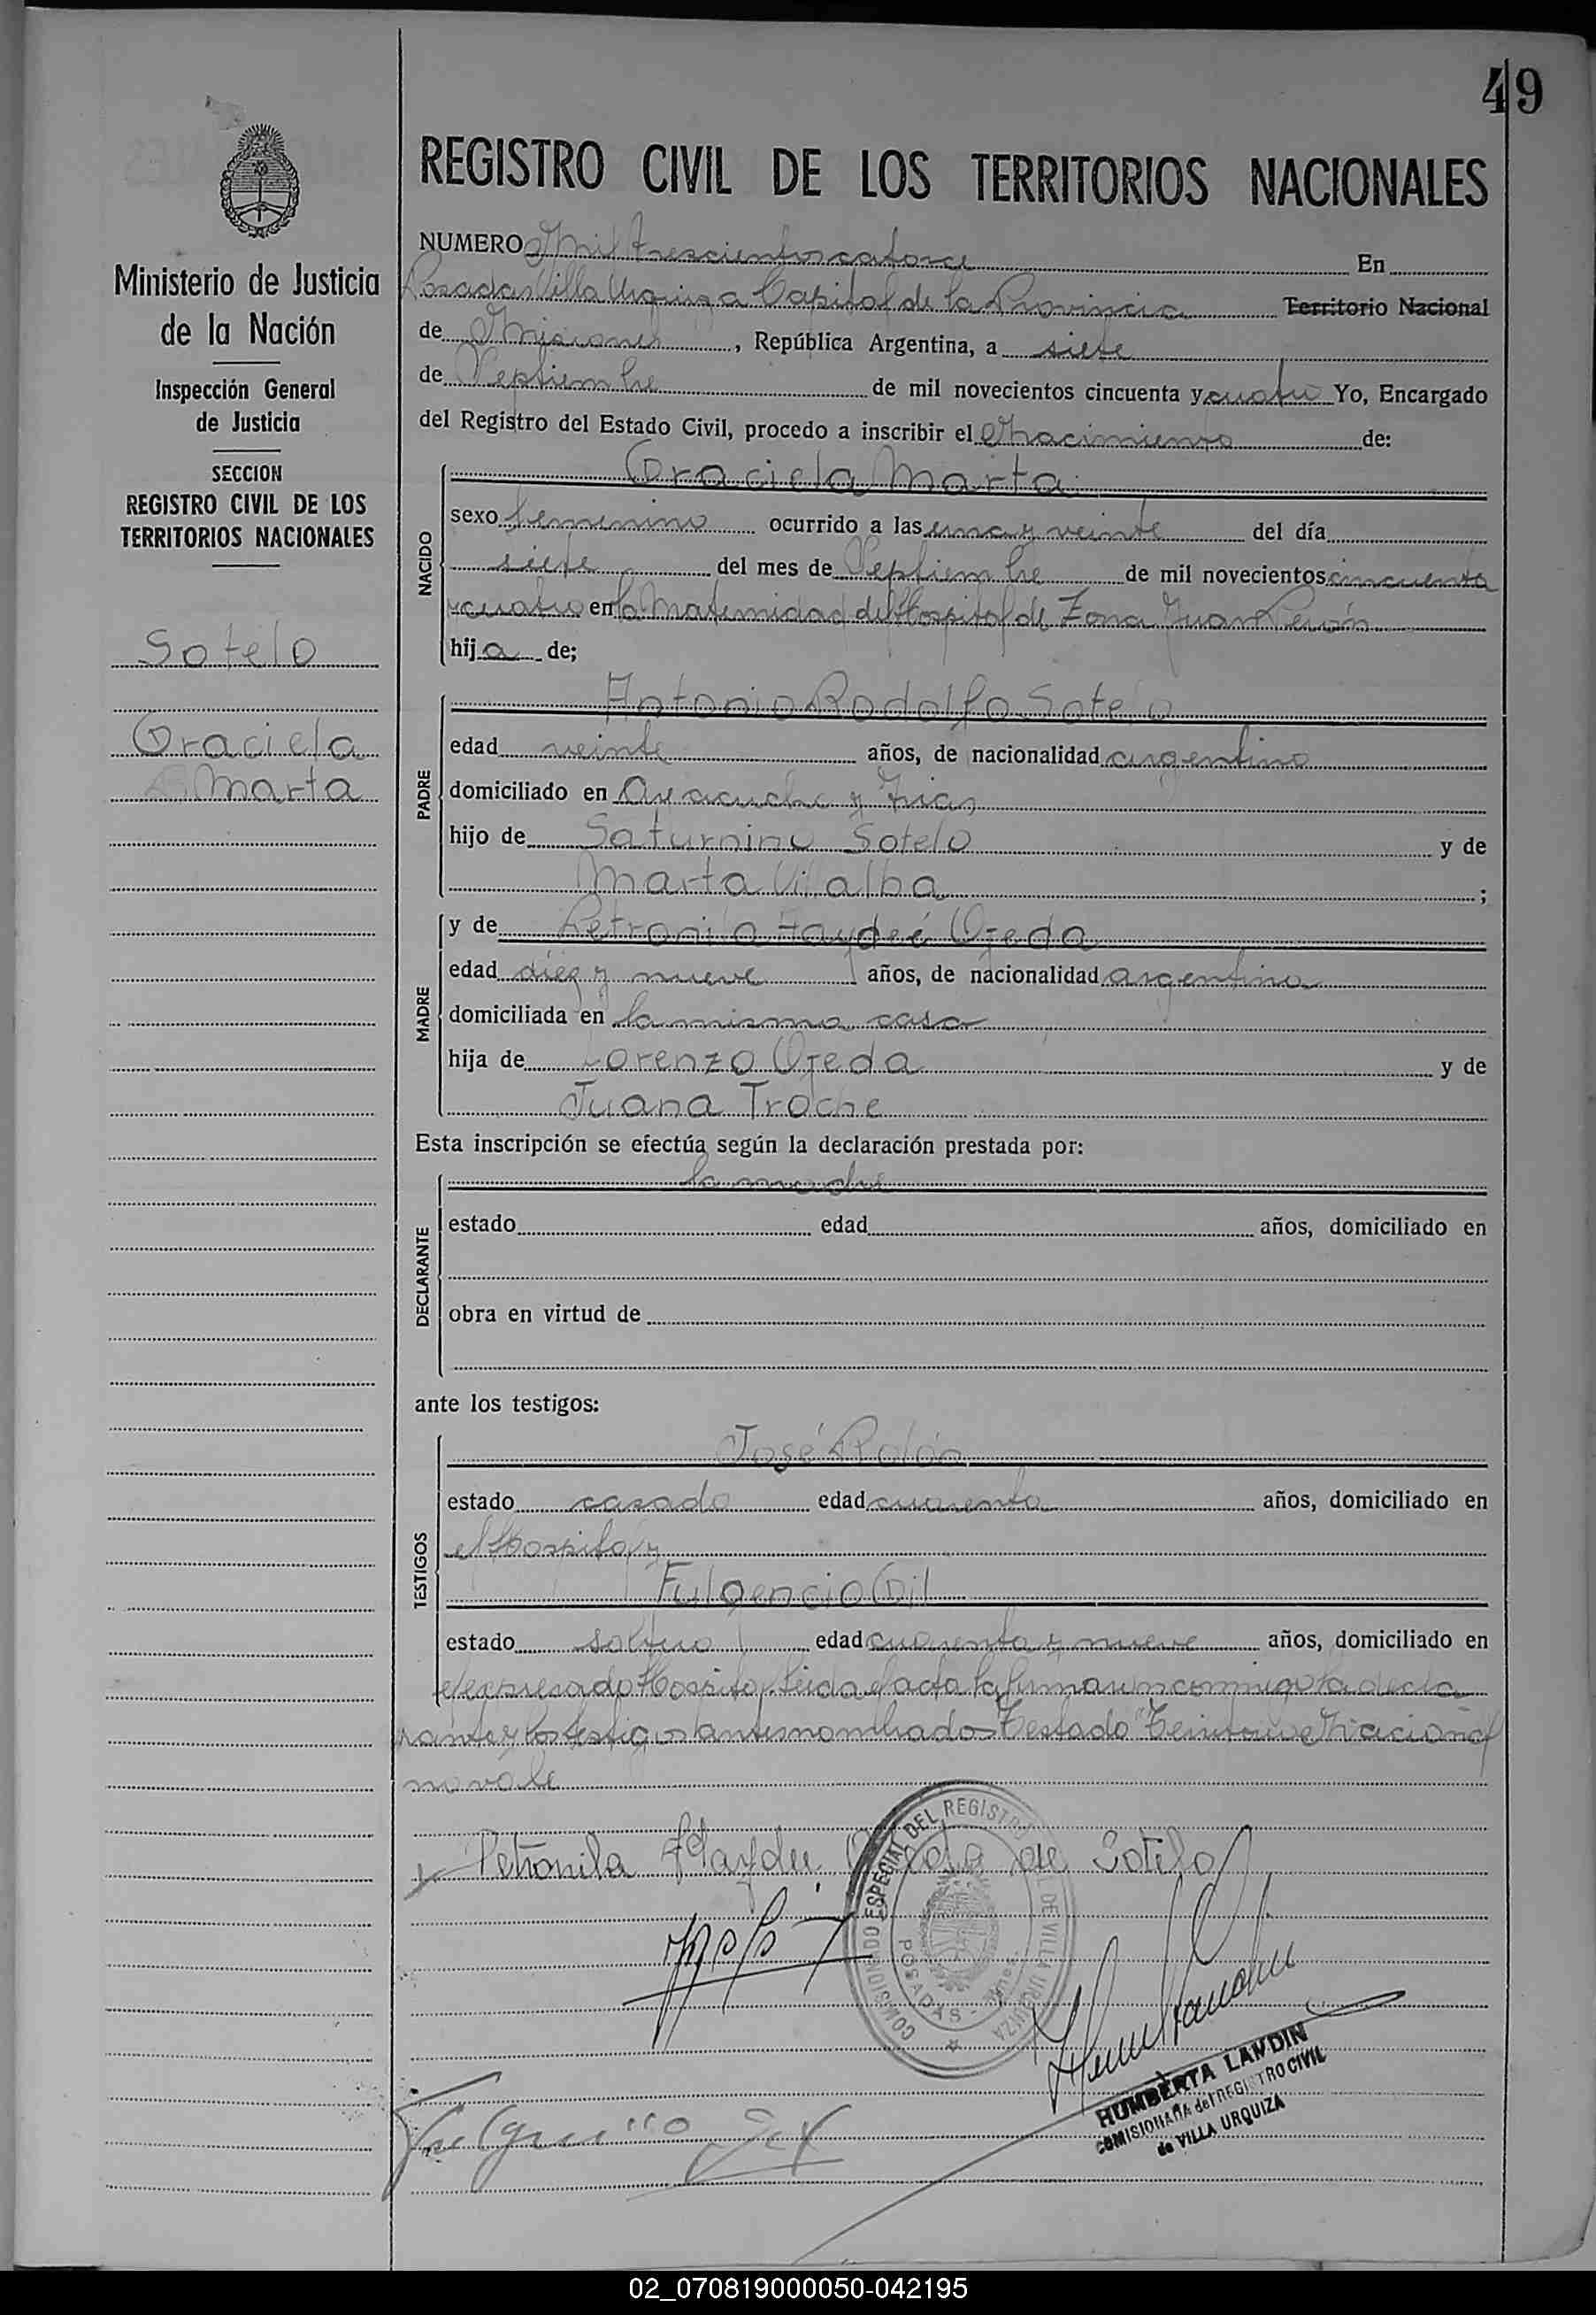 49
REGISTRO CIVIL DE LOS TERRITORIOS NACIONALES
Ministerio de Justicia
de la Nación
Inspección General
de Justicia
SECCION
REGISTRO CIVIL DE LOS
TERRITORIOS NACIONALES
Sotelo
Graciela
Marta
NUMERO Mil trescientos catorce En
Posadas Villa Urquiza Capital de la Provincia Territorio Nacional
de Misiones, República Argentina, a siete
de Septiembre de mil novecientos cincuenta y cuatro Yo, Encargado
del Registro del Estado Civil, procedo a inscribir el Nacimiento de:
NACIDO
Graciela Marta
sexo femenino ocurrido a las una y veinte del día
siete del mes de Septiembre de mil novecientos cincuenta
y cuatro en la Maternidad del Hospital de Zona Juan Perón
hija de;
PADRE
Antonio Rodolfo Sotelo
edad veinte años, de nacionalidad argentino
domiciliado en Ayacucho y Frias
hijo de Saturnino Sotelo y de
Marta Villalba ;
MADRE
y de Petronila Haydeé Ojeda
edad diez y nueve años, de nacionalidad argentina
domiciliada en la misma casa
hija de Lorenzo Ojeda y de
Juana Troche
Esta inscripción se efectúa según la declaración prestada por:
DECLARANTE
la madre
estado edad años, domiciliado en
obra en virtud de
ante los testigos:
TESTIGOS
José Rolón
estado casado edad cuarenta años, domiciliado en
el Hospital y
Fulgencio Gil
estado soltero edad cuarenta y nueve años, domiciliado en
el expresado Hospital. Leida el acta la firmaron conmigo la decla
rante y los testigos antes nombrados Testado "Territorio Nacional
no vale
Petronila Haydee Ojeda de Sotelo
COMISIONADO ESPECIAL DEL REGISTRO CIVIL DE VILLA URQUIZA
POSADAS
Fulgencio Gil
HUMBERTA LANDIN
COMISIONADA del REGISTRO CIVIL
de VILLA URQUIZA
02_070819000050-042195